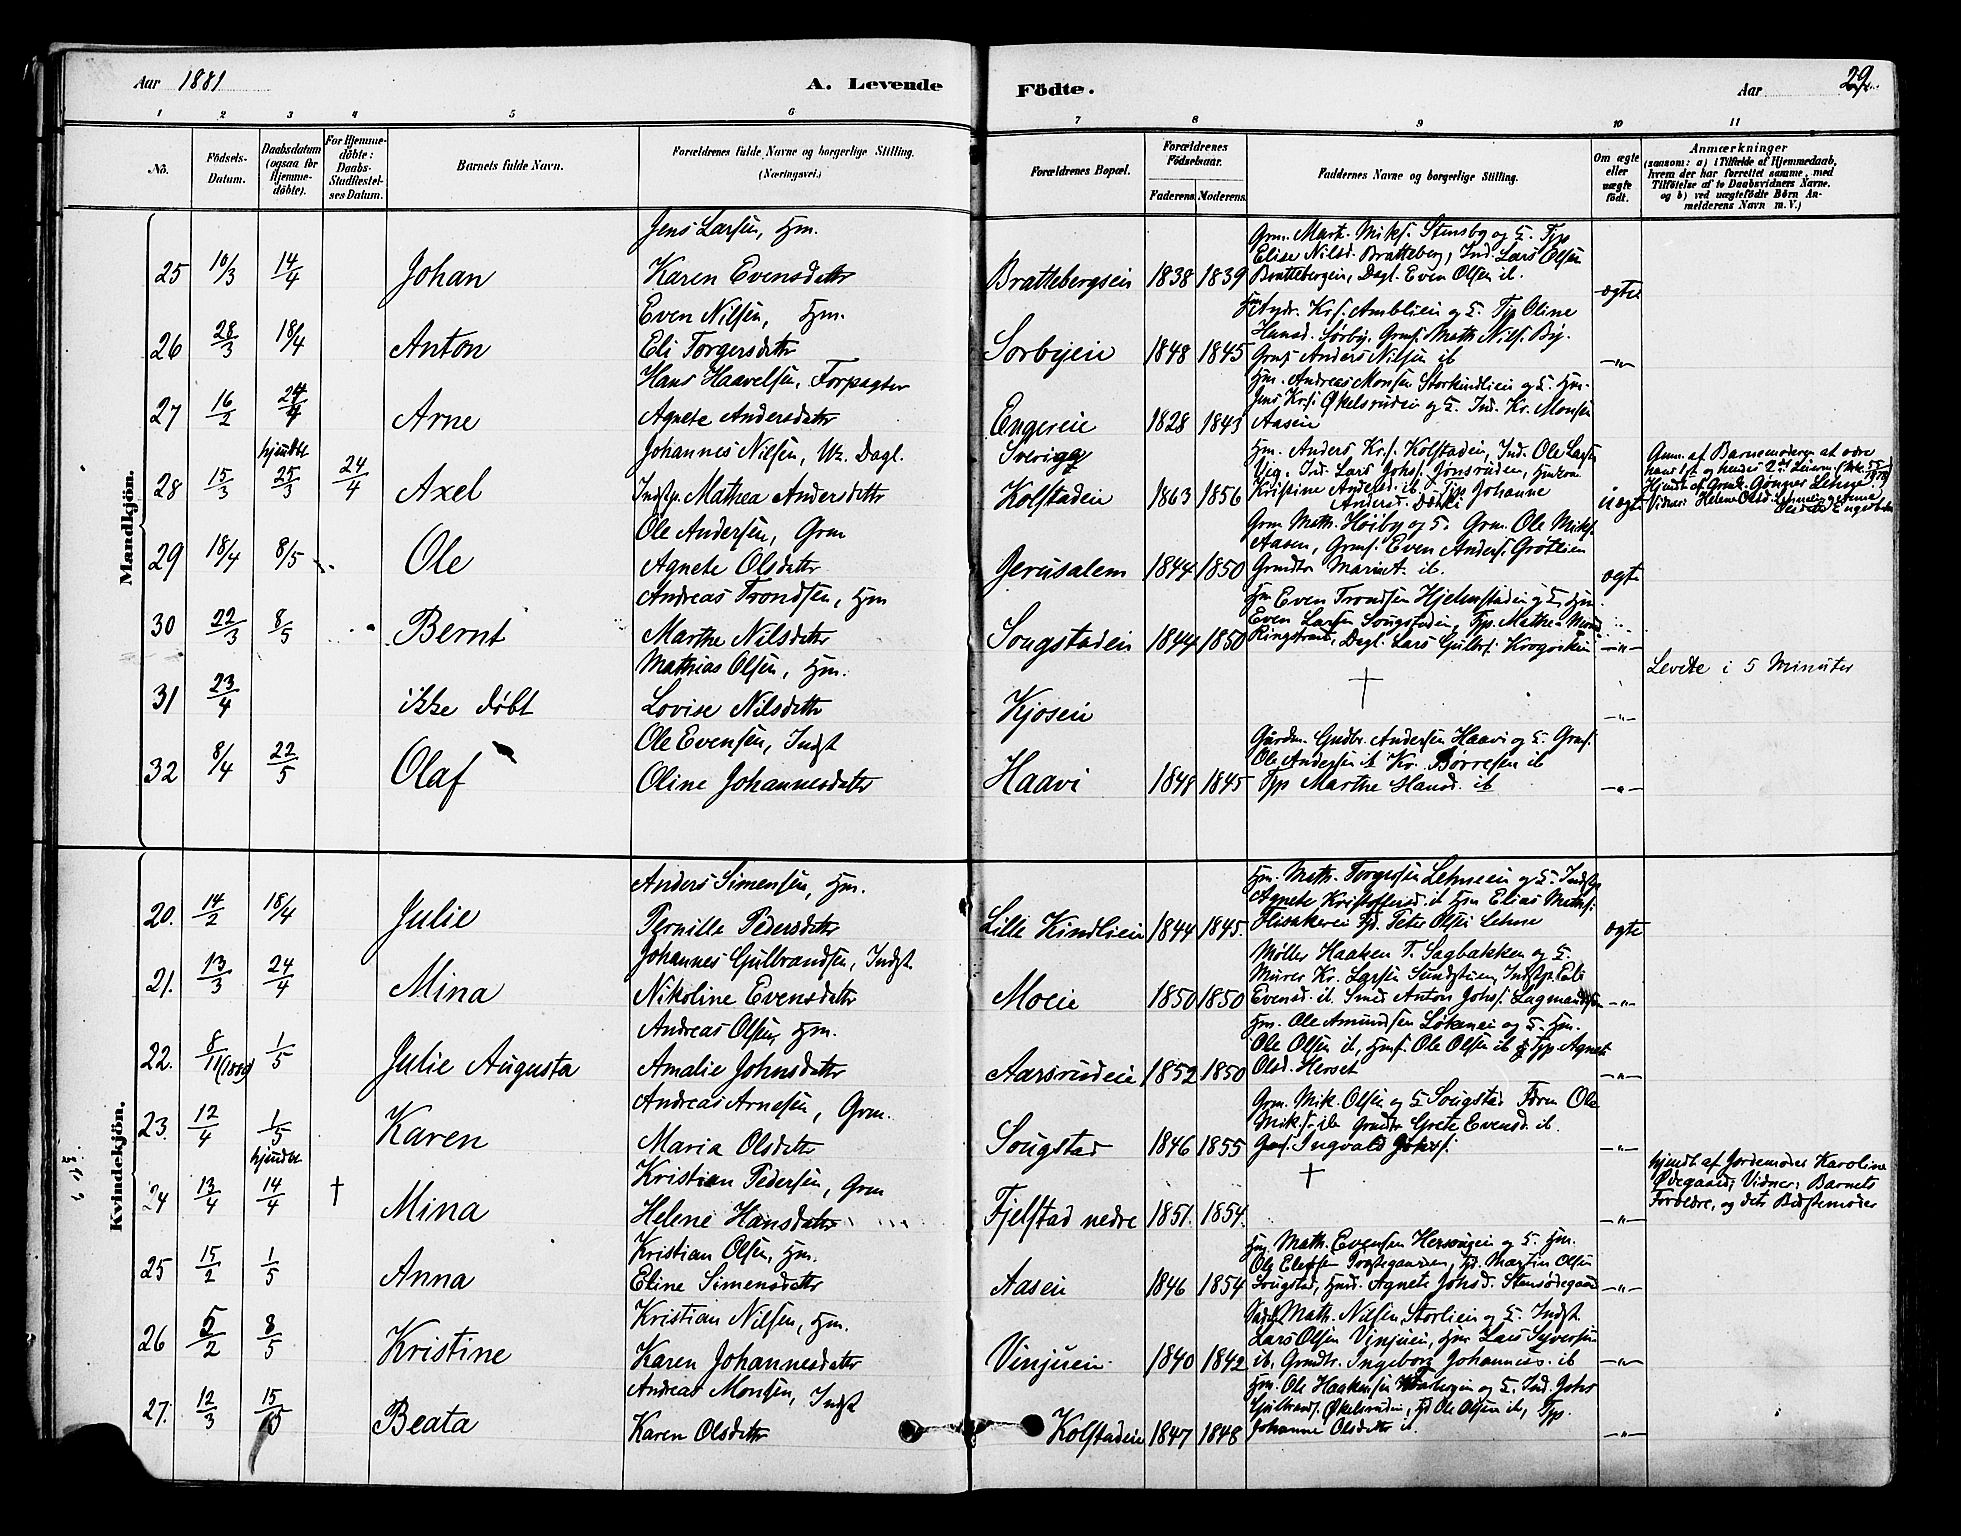 Aar 1881 A. Levende Födte. Aar 29.
1 2 3 4 5 6 7 8 9 10 11
No.
Födsels-Datum.
Daabsdatum (ogsaa for Hjemmedöbte).
For Hjemmedöbte: Daabs-Stadfæstelses Datum.
Barnets fulde Navn.
Forældrenes fulde Navne og borgerlige Stilling. (Næringsvei.)
Forældrenes Bopæl.
Forældrenes Födselsaar.
Faderens. Moderens.
Faddernes Navne og borgerlige Stilling.
Om ægte eller uægte födt.
Anmærkninger
(saasom: a) i Tilfælde af Hjemmedaab, hvem der har forrettet samme, med Tilföielse af to Daabsvidners Navne, og b) ved uægtefödte Börn Anmelderens Navn m. V.)
Mandkjön.
Jens Larsen, Hm.
25 10/3 14/4 Johan Karen Evensdatter Brattebergseie 1838 1839 ægte
Grm. Mart. Miks. Stensby og H. Pige
Elise Nilsd. Bratteberg, Ind. Lars Olsen
Brattebergeie, Dagl. Even Olsen ib.
Even Nilsen, Hm.
26 28/3 18/4 Anton Eli Torgersdatter Sörbyeie 1848 1845 -"-
Hm. Andr. Krs. Amblieie og H. Pige Oline
Hansd. Sörby, Grms. Math. Nils. By.
Grms. Anders Nilsen ib
Hans Haavelsen, Forpagter
27 16/2 24/4 Arne Agnete Andersdatter Engereie 1828 1843
Hm. Andreas Monsen Storkindlieie og H. Hm.
Jens Krs. Økelsrudeie og H. Ind. Kr. Monsen
Aaseie
Johannes Nilsen, Uk. Dagl. Sverige
28 15/3 hjemdbt 25/3 24/4 Axel Indstp. Mathea Andersdatter Kolstadeie 1863 1856 uægte
Hm. Anders Krs. Kolstadeie, Ind. Ole Larsen
Vig, Ind. Lars Johs. Jönsrudeie, Hmkone
Kristine Andersd. ib. Pige Johanne
Andersd. Döhli
Anm. af Barnemoderen at være
hans 1st og hendes 2det Leierm.
Hjemdt. af Grmk. Gønner Lehne
Vidner: Helene Olsd. Lehneeie og Anne
Olsdatter Engerbakken
Ole Andersen, Grm
29 18/4 8/5 Ole Agnete Olsdatter Jerusalem 1844 1850 ægte
Grm. Math. Höiby og H. Grm. Ole Miks.
Aasen, Grms. Even Anders. Grötlien
Grmdtr. Marie A. ib.
Andreas Trondsen, Hm
30 22/3 8/5 Bernt Marthe Nilsdatter Sougstadeie 1844 1850 -"-
Hm Even Trondsen Hjelmstadeie og H. Hm.
Even Larsen Sougstadeie, Pige Mathea
Ringstrand, Dagl. Lars Gulbr.
Mathias Olsen, Hm.
31 23/4 ikke döbt Lovise Nilsdatter Kjoseie † -"-
Levede i 5 Minuter
Ole Evensen, Indst
32 8/4 22/5 Olaf Oline Johannesdatter Haavi 1848 1845 -"-
Gaardm. Gudbr. Andersen Haavi og H. Grms.
Ole Andersen ib Kr. Börresen ib
Pige Marthe Hansd. ib
Kvindekjön.
Anders Simensen, Hm.
20. 14/2 18/4 Julie Pernille Pedersdatter Lille Kindlieie 1844 1845. ægte
Hm. Math. Torgersen Lehneeie og H. Indstp
Agnete Kristoffersd. ib Hm Elias Maths.
Flisakereie Pd. Peter Olsen Lehne
Johannes Gulbrandsen, Indst.
21. 13/3 24/4 Mina Nikoline Evensdatter Moeie 1850 1850 -"-
Møller Haaken T. Sagbakken og H.
Murer Kr. Larsen Sundstuen, Indstp. Eli
Evensd. ib. Smed Anton Johs. Lagmandseie
Andreas Olsen, Hm.
22. 8/11(1880) 1/5 Julie Augusta Amalie Johnsdatter Aarsrudeie 1852 1850 -"-
Hm. Ole Amundsen Løkeneie og H. Hm.
Ole Olsen ib, Hms. Ole Olsen ib Pige Agnete
Olsd. Herset
Andreas Arnesen, Grm.
23. 12/4 1/5 Karen Maria Olsdatter Sougstad 1846 1855 -"-
Grm. Mik. Olsen og H Sougstad Forn Ole
Miks. ib Grmdtr Grete Evensd. ib.
Grms. Ingvald Johs.
Kristian Pedersen, Grm
24 13/4 hjemdbt 14/4 † Mina Helene Hansdatter Fjelstad nedre 1851. 1854. † -"-
hjemdt af Jordemoder Karoline
Ødegaard; Vidner: Barnets
Forældre, og dets Bedstemoder
Kristian Olsen, Hm.
25 15/2 1/5 Anna Eline Simensdatter Aaseie 1846 1854 -"-
Hm. Math. Evensen Hersougeie og H. Hm.
Ole Elefsen Prestegaardeie, Pd. Martin Olsen
Sougstad, Hmd. Agnete Johsd. Stensödegaard
Kristian Nilsen, Hm.
26 5/2 8/5 Kristine Karen Johannesdatter Vinjueie 1840 1842 -"-
Math. Nilsen, Storlieie og H. Indst.
Lars Olsen Vinjueie, Hm Lars Syversen
ib, Grmdtr. Ingeborg Johannes. ib
Andreas Monsen, Indst
27. 12/3 15/5 Beata Karen Olsdatter Kolstadeie 1847 1848 -"-
Hm. Ole Haakensen og H. Ind. Johs
Gulbrands. Økelsrudeie, Pd Ole Olsen ib, Pige
Johanne Olsdatter ib.